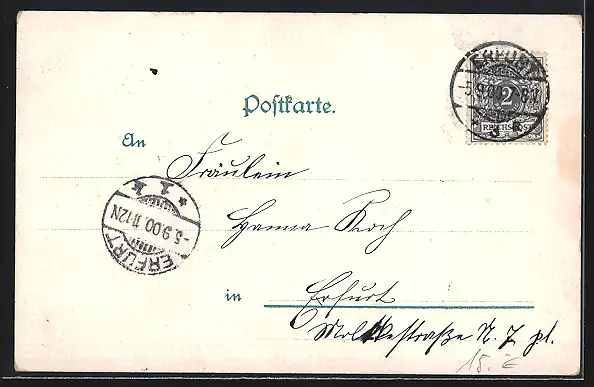 ERFURT
5.9.00
2
REICHSPOST
Postkarte.
An
Fräulein
Hanna Koch
* 1 k
-5.9.00.11-12N
ERFURT
in Erfurt
Moltkestraße N. 7 pt.
15.-